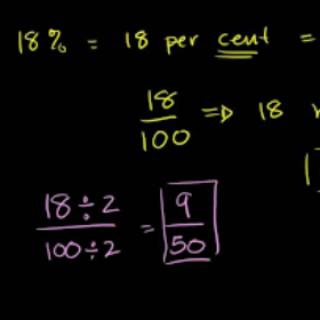 18% = 18 per cent =
18/100 => 18
18÷2/100÷2 = 9/50